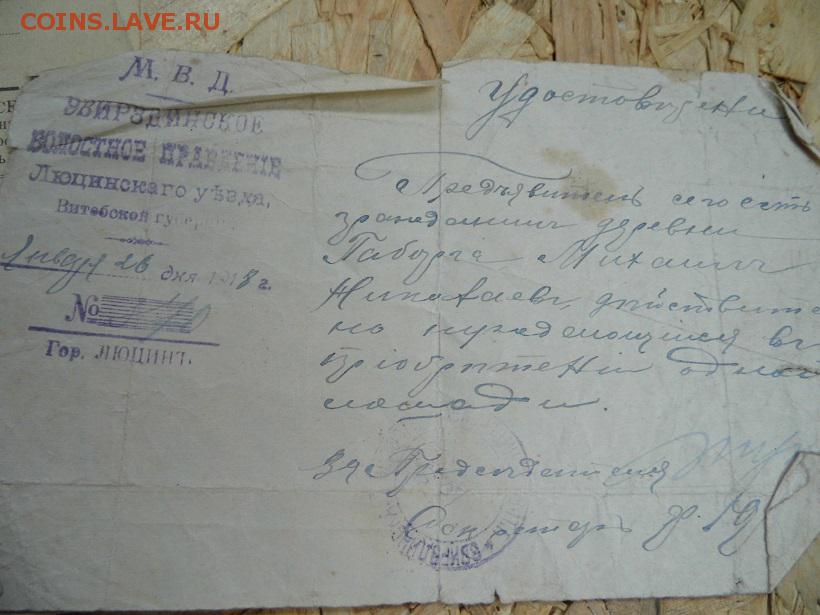 COINS.LAVE.RU
М. В. Д.
ЭВИРЗДИНСКОЕ
ВОЛОСТНОЕ ПРАВЛЕНІЕ
Люцинскаго уѣзда,
Витебской губерн
Января 26 дня 1918 г.
№
Гор. ЛЮЦИНЪ.
Удостовѣрені
Предъявитель сего есть
гражданинъ деревни
Михаилъ
Николаевъ, дѣйствите
но нуждающійся въ
пріобрѣтеніи одной
лошади.
За Предсѣдателя
Секретарь